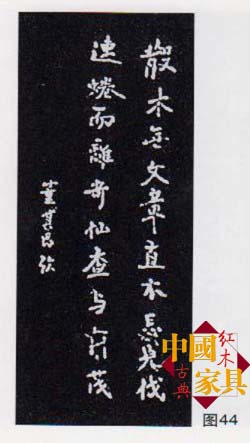 散木無文章直木忌先伐
連蜷而離奇仙查与舟筏
董其昌題
中國
红木
古典
家具
图44